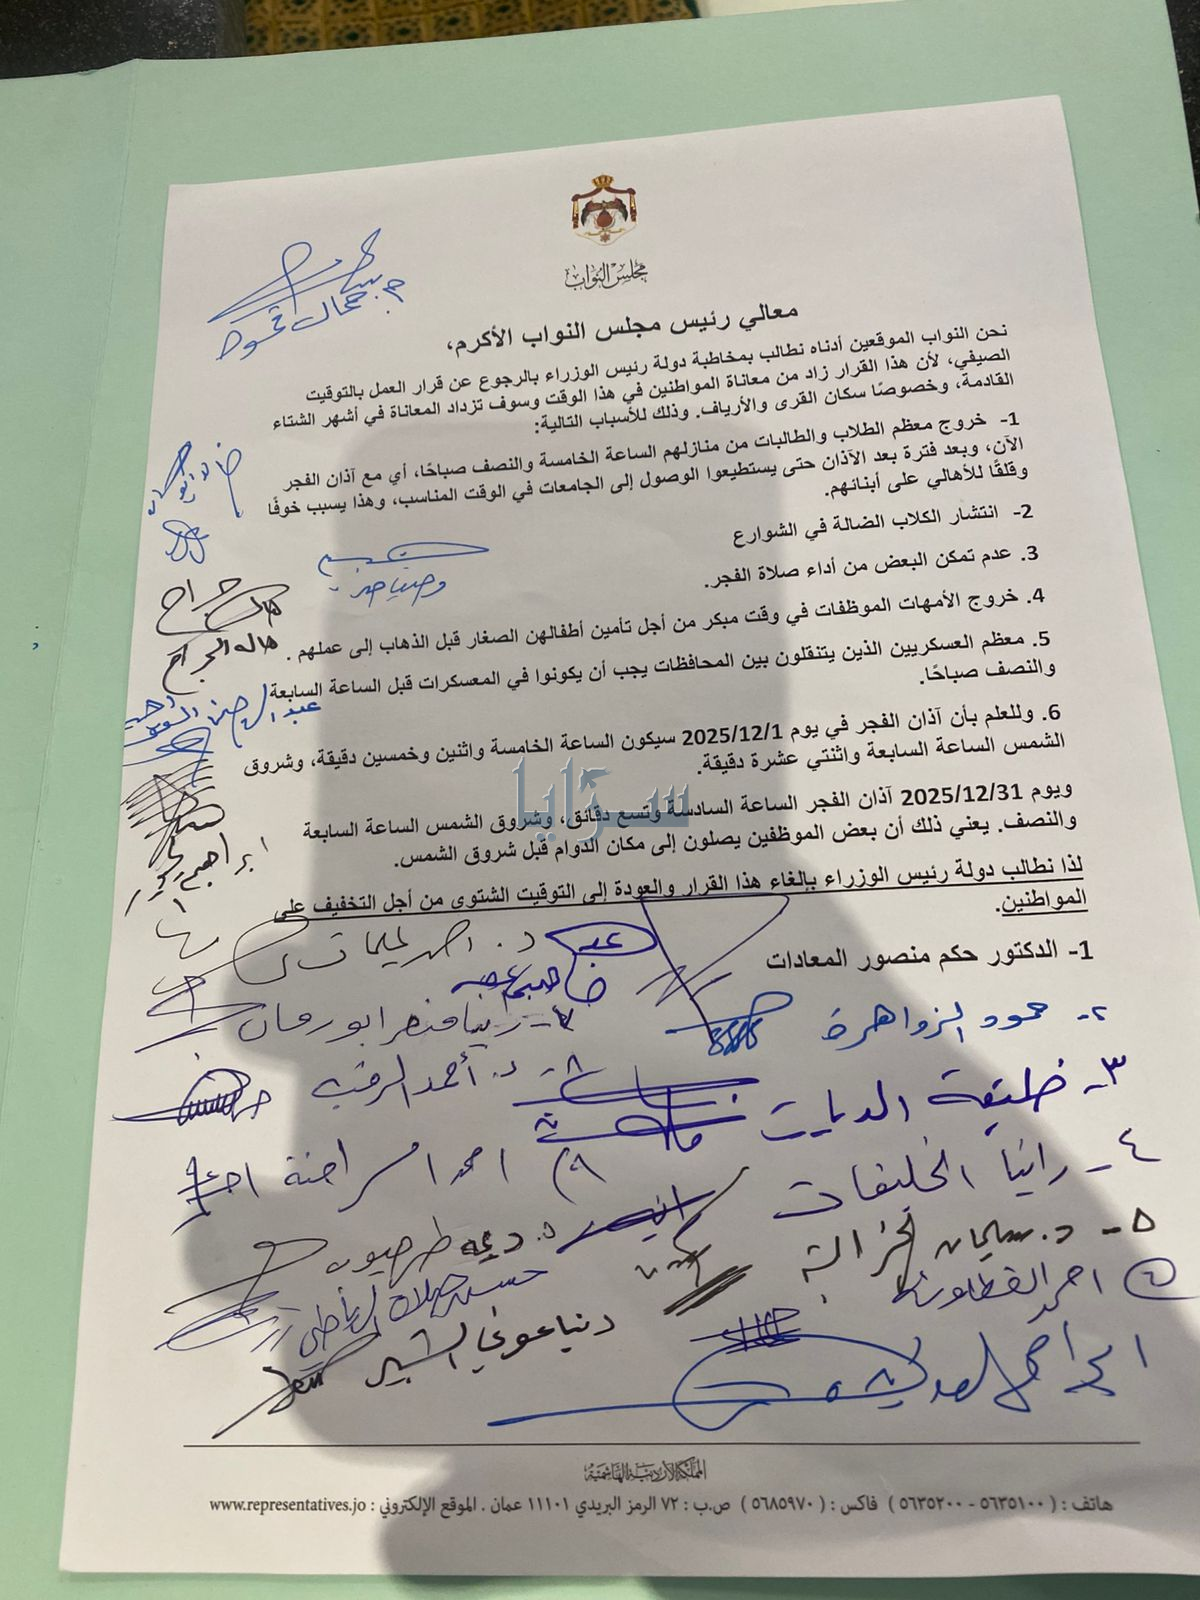 مجلس النواب
معالي رئيس مجلس النواب الأكرم،
نحن النواب الموقعين أدناه نطالب بمخاطبة دولة رئيس الوزراء بالرجوع عن قرار العمل بالتوقيت
الصيفي، لأن هذا القرار زاد من معاناة المواطنين في هذا الوقت وسوف تزداد المعاناة في أشهر الشتاء
القادمة، وخصوصًا سكان القرى والأرياف. وذلك للأسباب التالية:
1- خروج معظم الطلاب والطالبات من منازلهم الساعة الخامسة والنصف صباحًا، أي مع آذان الفجر
الآن، وبعد فترة بعد الآذان حتى يستطيعوا الوصول إلى الجامعات في الوقت المناسب، وهذا يسبب خوفًا
وقلقًا للأهالي على أبنائهم.
2- انتشار الكلاب الضالة في الشوارع
3. عدم تمكن البعض من أداء صلاة الفجر.
4. خروج الأمهات الموظفات في وقت مبكر من أجل تأمين أطفالهن الصغار قبل الذهاب إلى عملهم .
5. معظم العسكريين الذين يتنقلون بين المحافظات يجب أن يكونوا في المعسكرات قبل الساعة السابعة
والنصف صباحًا.
6. وللعلم بأن آذان الفجر في يوم 2025/12/1 سيكون الساعة الخامسة واثنين وخمسين دقيقة، وشروق
الشمس الساعة السابعة واثنتي عشرة دقيقة.
سرايا
ويوم 2025/12/31 آذان الفجر الساعة السادسة وتسع دقائق، وشروق الشمس الساعة السابعة
والنصف. يعني ذلك أن بعض الموظفين يصلون إلى مكان الدوام قبل شروق الشمس.
لذا نطالب دولة رئيس الوزراء بإلغاء هذا القرار والعودة إلى التوقيت الشتوي من أجل التخفيف على
المواطنين.
1- الدكتور حكم منصور المعادات
٢- حمود الزواهرة
٣- خليفة الديات
٤- رانيا الخليفات
٥- د. سليمان الخرالبة
٦ احمد القطاونة
م. جمال قموه
هاله الجراح
ابراهيم
٧- رانيا منصر ابو رمان
٨- د. أحمد الرقب
٩) احمد السراحنة
د. ديمه طهبوب
دنيا عوني الشبر
المملكة الأردنية الهاشمية
هاتف : ( ٥٦٣٥١٠٠ - ٥٦٣٥٢٠٠ ) فاكس : ( ٥٦٨٥٩٧٠ ) ص.ب : ٧٢ الرمز البريدي ١١١٠١ عمان . الموقع الإلكتروني : www.representatives.jo